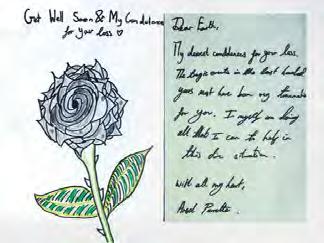 Get Well Soon & My Condolence
for your loss
Dear Earth,
My dearest condolences for your loss.
The tragic events in the last hundred
years must have been very traumatic
for you. I myself am doing
all that I can to help in
this dire situation.
With all my heart,